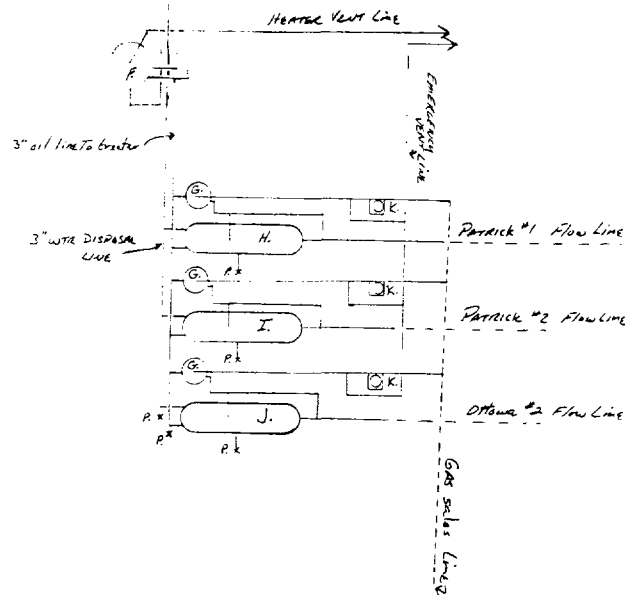 HEATER VENT LINE
F.
EMERGENCY
VENT LINE
3" oil line To treater
G.
K.
3" WTR DISPOSAL
LINE
H.
PATRICK #1 Flow LINE
P. x
G.
K.
I.
PATRICK #2 Flow LINE
P. x
G.
K.
J.
OTTOWA #2 Flow LINE
P. x
P. x
P. x
GAS Sales LINE